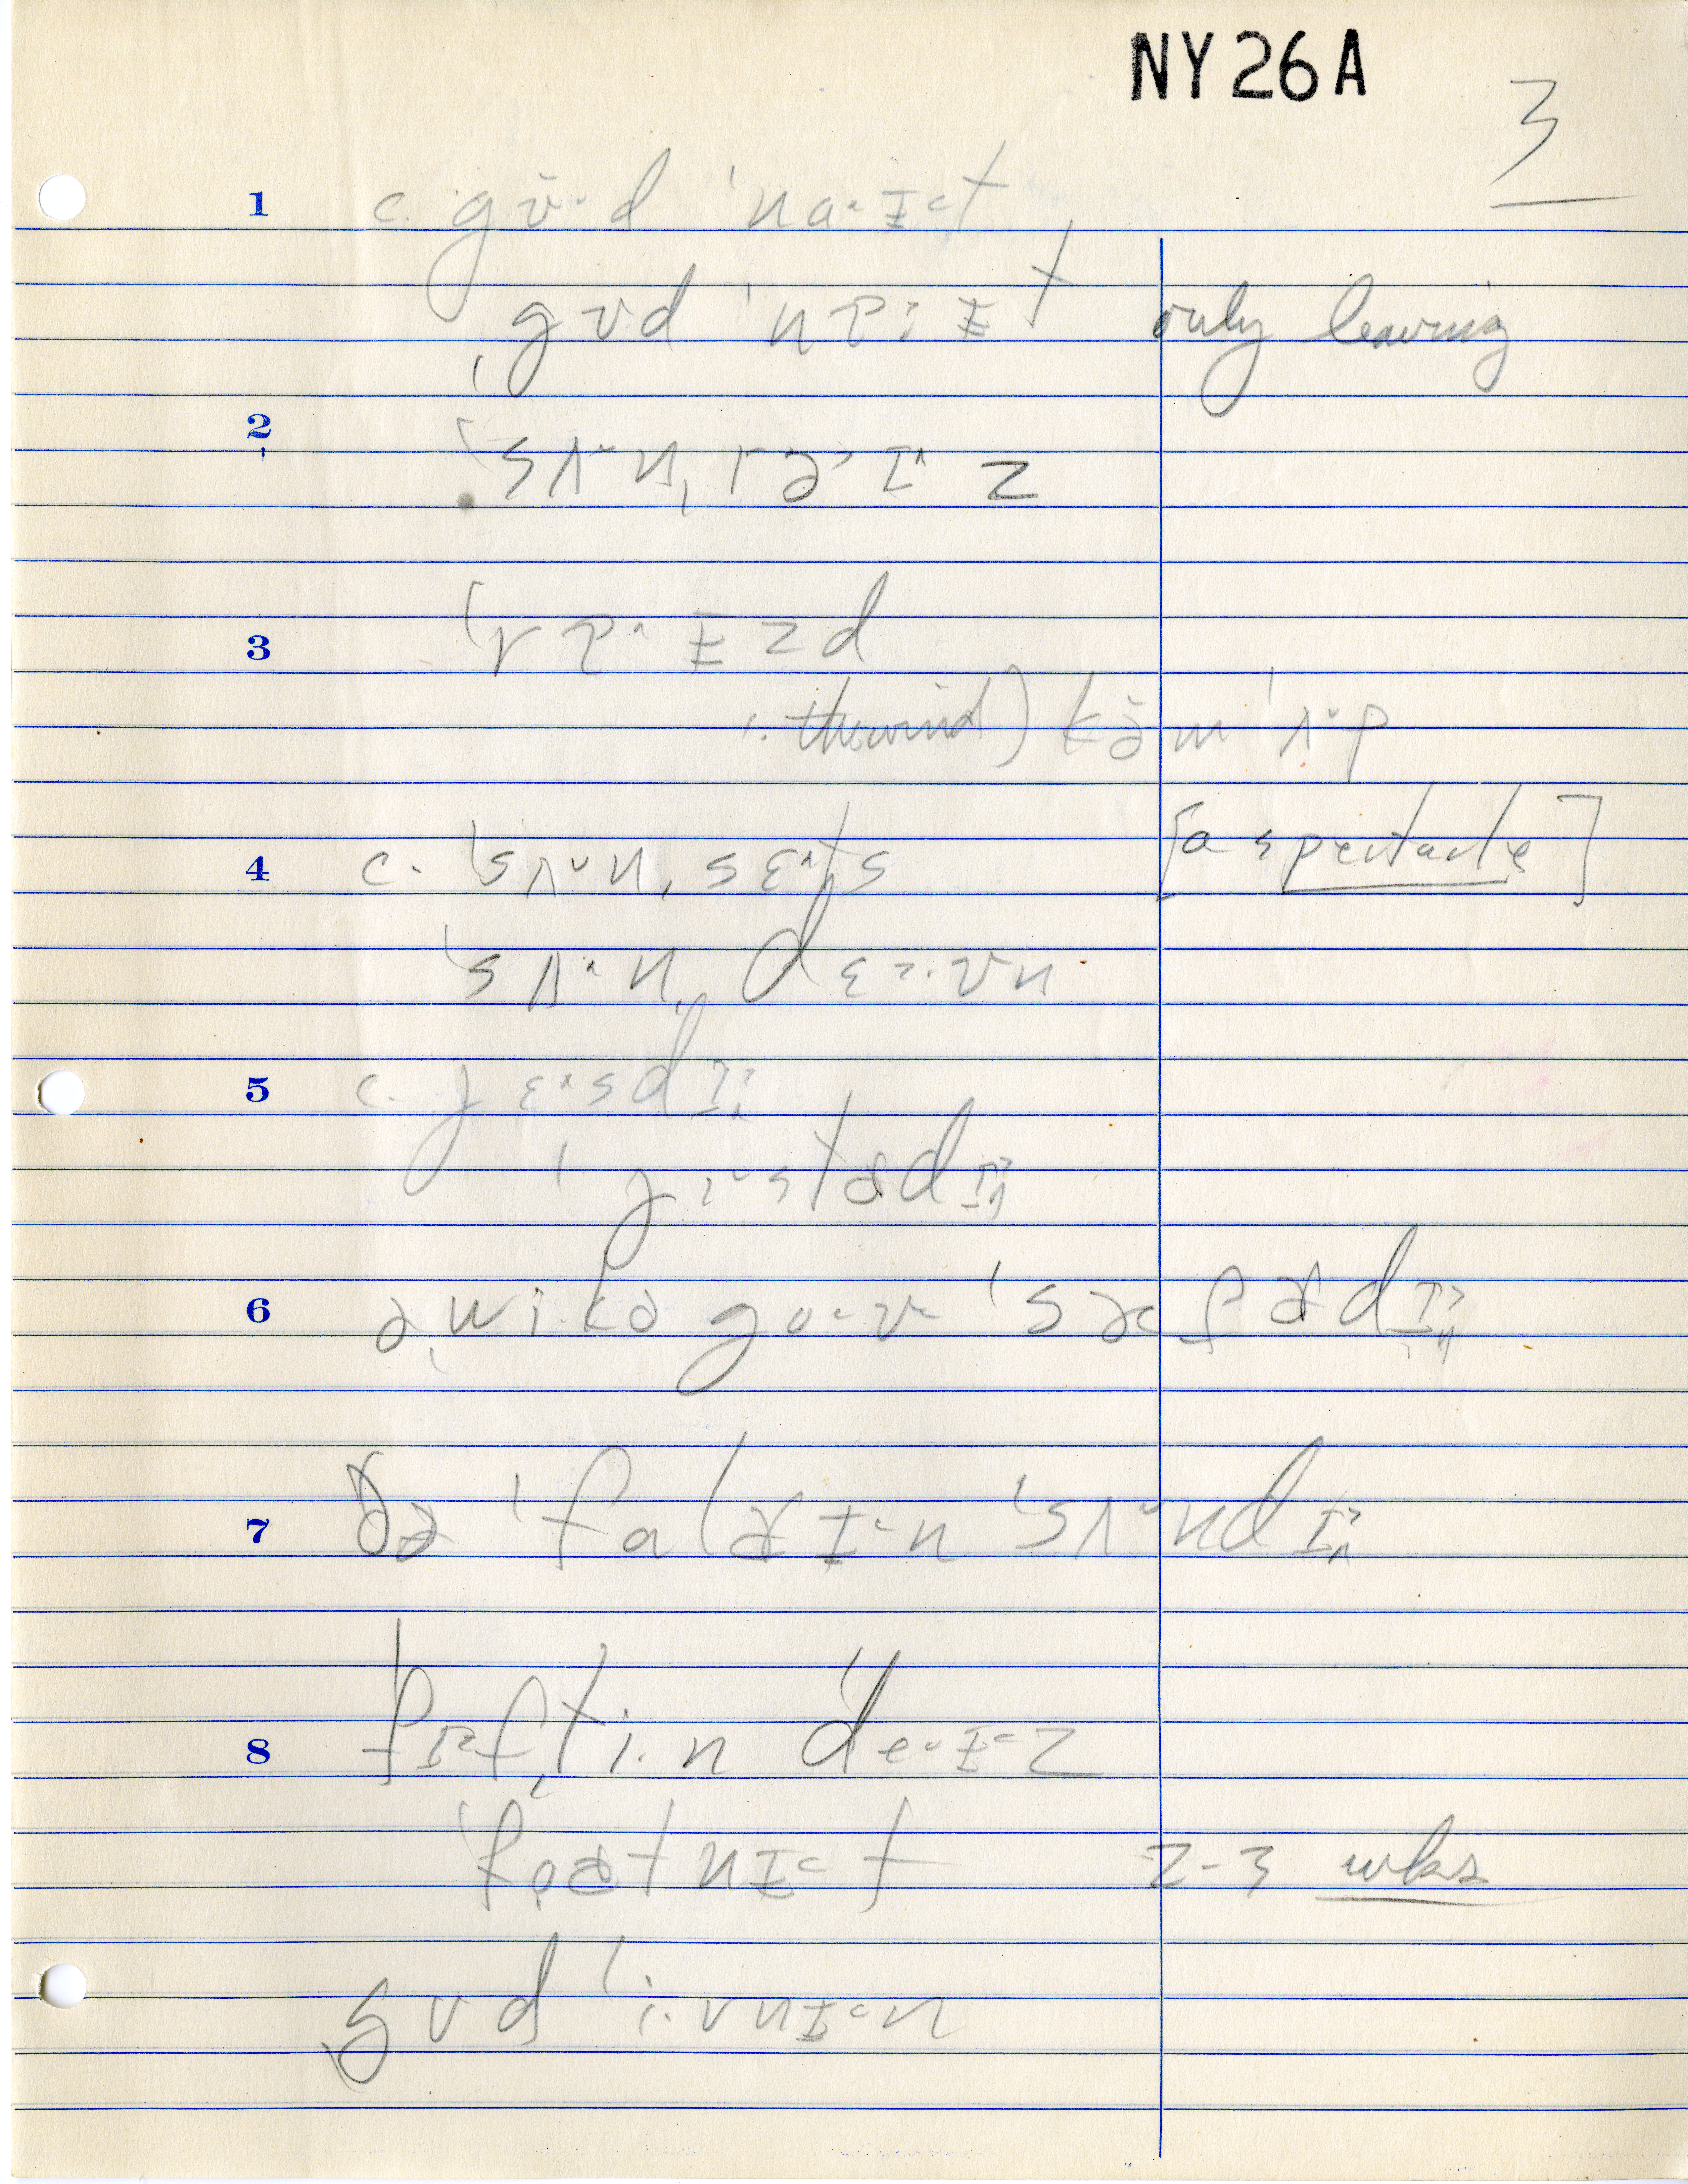 NY 26 A
3
1 c. gʊ̆ᵛd ˈnɑ˂ɪ˂t
ˌgʊd ˈnɐ:ɪt only leaving
2 ˈsʌ˅nˌrə˃ɪ˄z
3 ˈrɐ˄ɪzd
: the wind) kəm ˈʌ˅p
4 c. ˈsʌ˅nˌsɛ˄ts [a spectacle]
ˈsʌ˄nˌdɛ˂ʊn
5 c. jɛ˄sdɪ˄
ˈjɪ˅stɚdɪ˄
6 əˌwi·kə go˂ʊ˂ ˈsæfɚdɪ˄
7 ðə ˈfɑlɚɪ˂n ˈsʌ˅ndɪ˄
8 ˈfɪ˂fˌti·n ˈde˄ɪ˂z
ˈfoɚtnɪ˂t 2-3 wks
ˌgʊd ˈi·vnɪ˂n